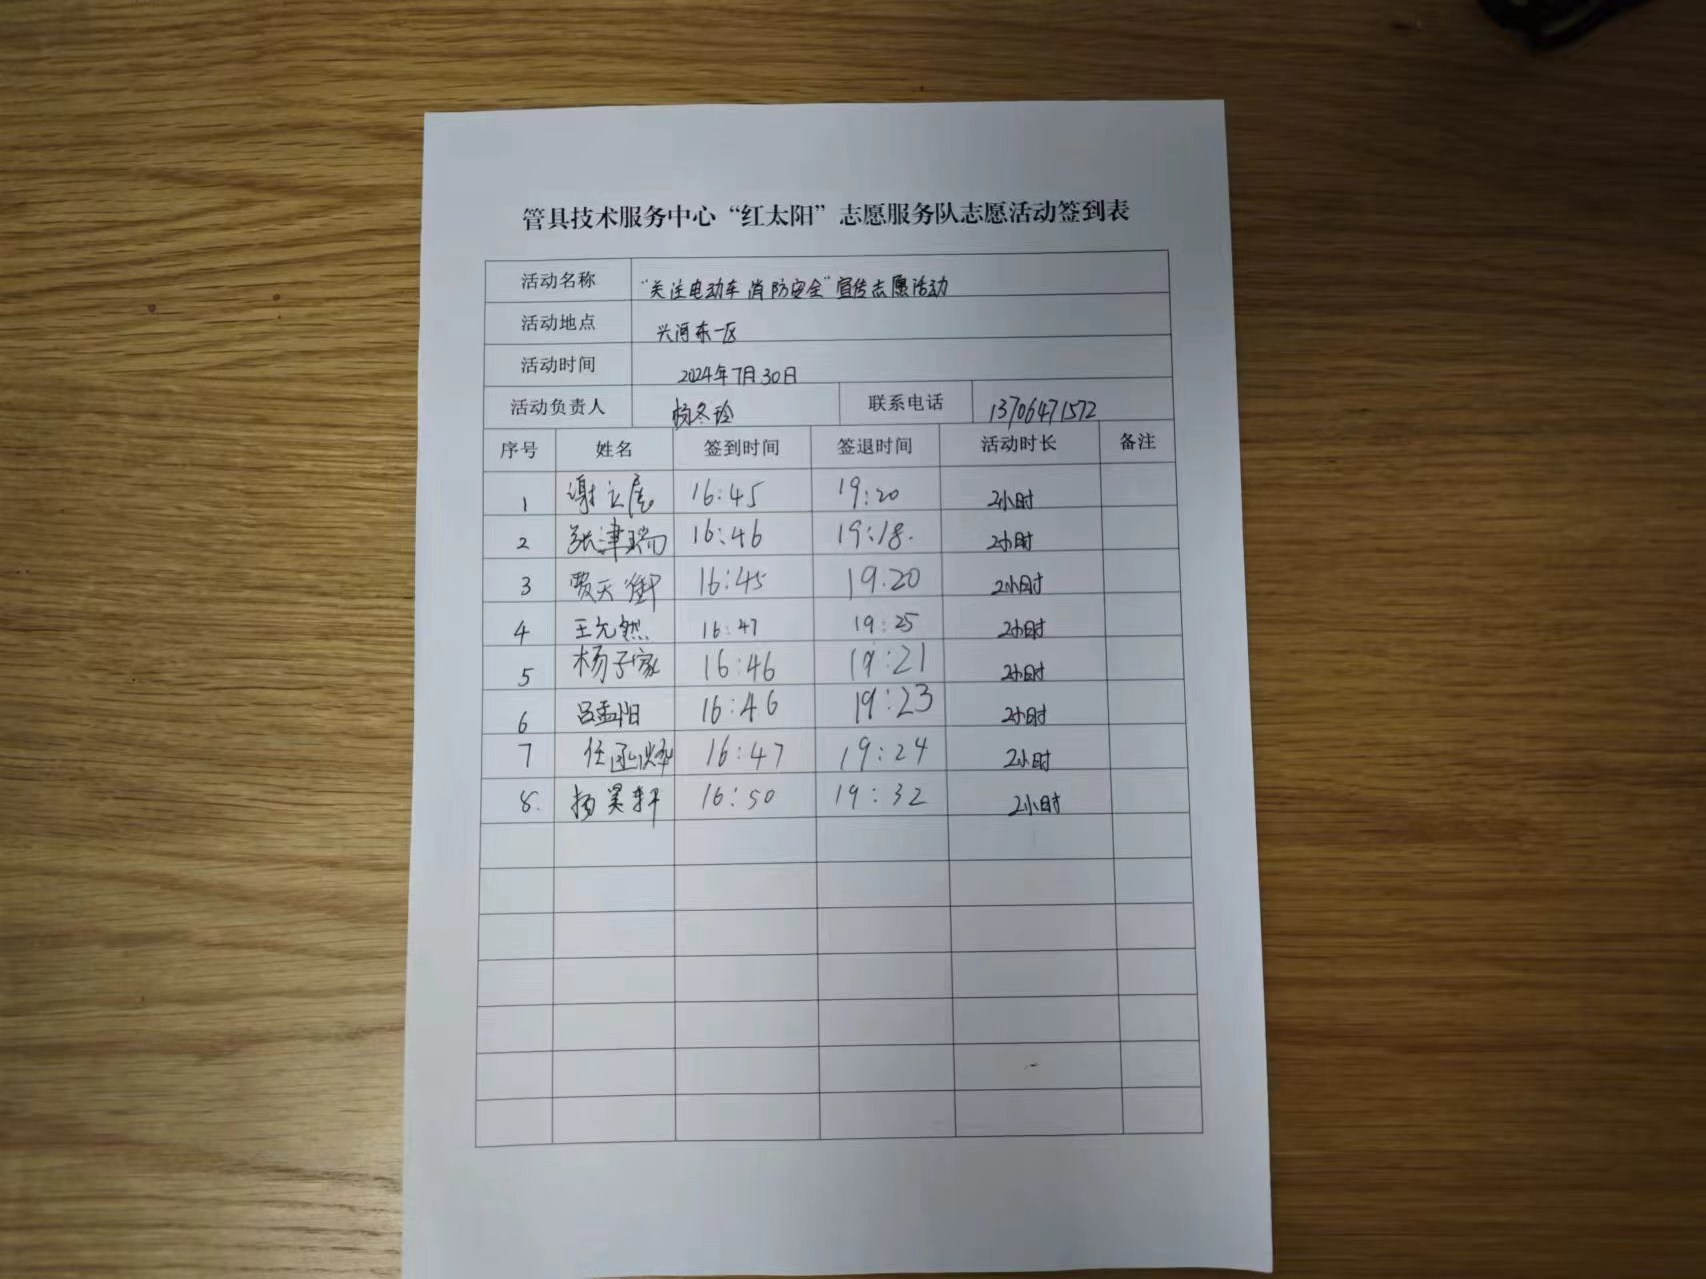 管具技术服务中心“红太阳”志愿服务队志愿活动签到表
活动名称 “关注电动车消防安全”宣传志愿活动
活动地点 兴河东一区
活动时间 2024年7月30日
活动负责人 杨冬玲 联系电话 13706471572
序号 姓名 签到时间 签退时间 活动时长 备注
1 谢立展 16:45 19:20 2小时
2 张津瑞 16:46 19:18. 2小时
3 贾天衡 16:45 19.20 2小时
4 王允然 16:47 19:25 2小时
5 杨子家 16:46 19:21 2小时
6 吕孟阳 16:46 19:23 2小时
7 任函烨 16:47 19:24 2小时
8. 杨昊轩 16:50 19:32 2小时